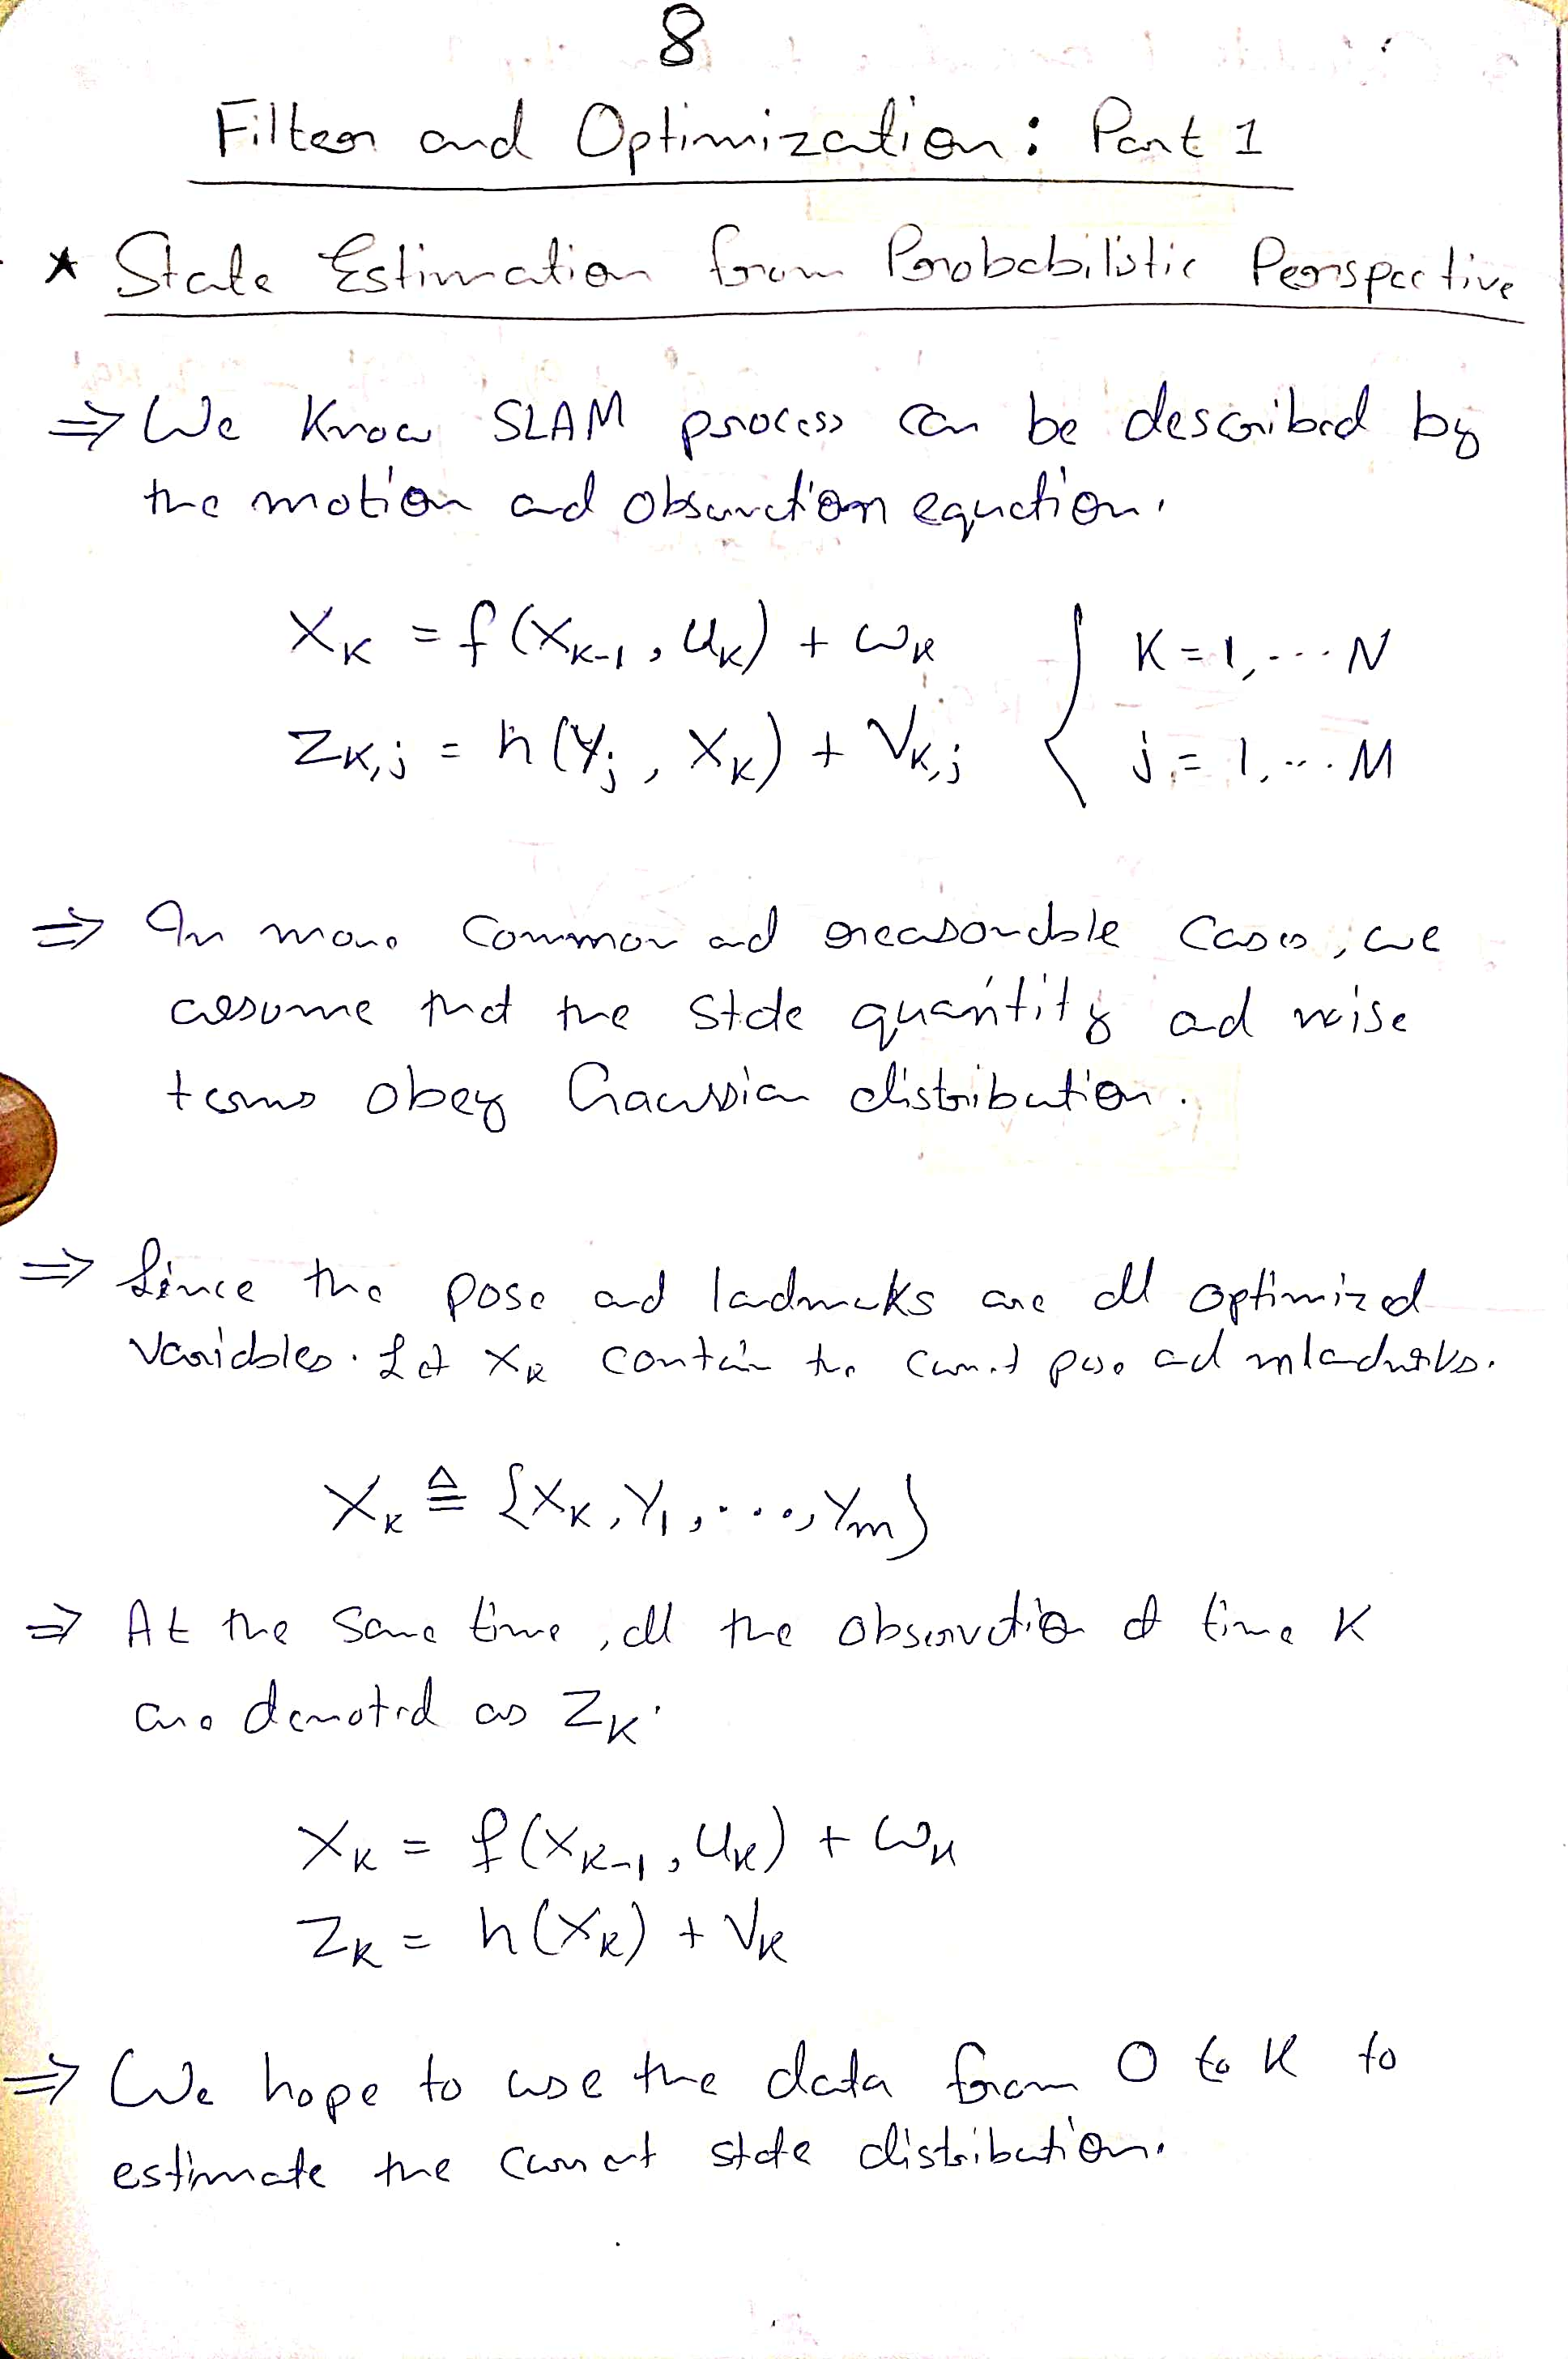 8
Filter and Optimization: Part 1
* State Estimation from Probabilistic Perspective
⇒ We know SLAM process can be described by
the motion and observation equation.
X_K = f(X_{K-1}, U_K) + ω_K { K = 1, ... N
Z_{K,j} = h(Y_j, X_K) + V_{K,j} { j = 1, ... M
⇒ In more common and reasonable cases, we
assume that the state quantity and noise
terms obey Gaussian distribution.
⇒ Since the pose and landmarks are all optimized
variables. Let X_K contain the current pose and m landmarks.
X_K ≜ {X_K, Y_1, ...., Y_m}
⇒ At the same time, all the observation at time K
are denoted as Z_K.
X_K = f(X_{K-1}, U_K) + ω_K
Z_K = h(X_K) + V_K
⇒ We hope to use the data from 0 to K to
estimate the current state distribution.